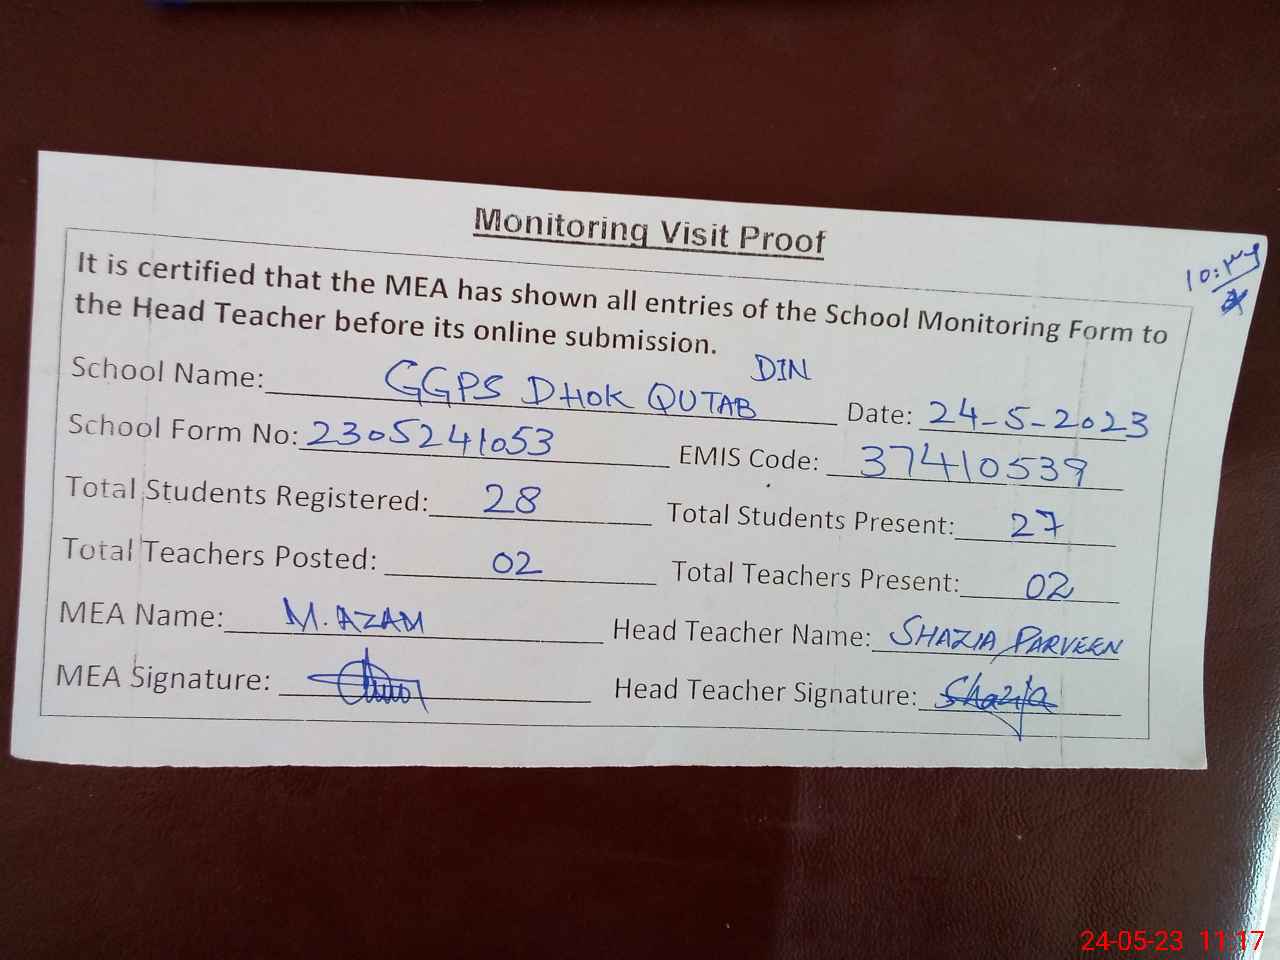 Monitoring Visit Proof
It is certified that the MEA has shown all entries of the School Monitoring Form to
the Head Teacher before its online submission.
School Name: GGPS DHOK QUTAB DIN Date: 24-5-2023
School Form No: 2305241053 EMIS Code: 37410539
Total Students Registered: 28 Total Students Present: 27
Total Teachers Posted: 02 Total Teachers Present: 02
MEA Name: M. AZAM Head Teacher Name: SHAZIA PARVEEN
MEA Signature: Head Teacher Signature: Shazia
24-05-23 11:17